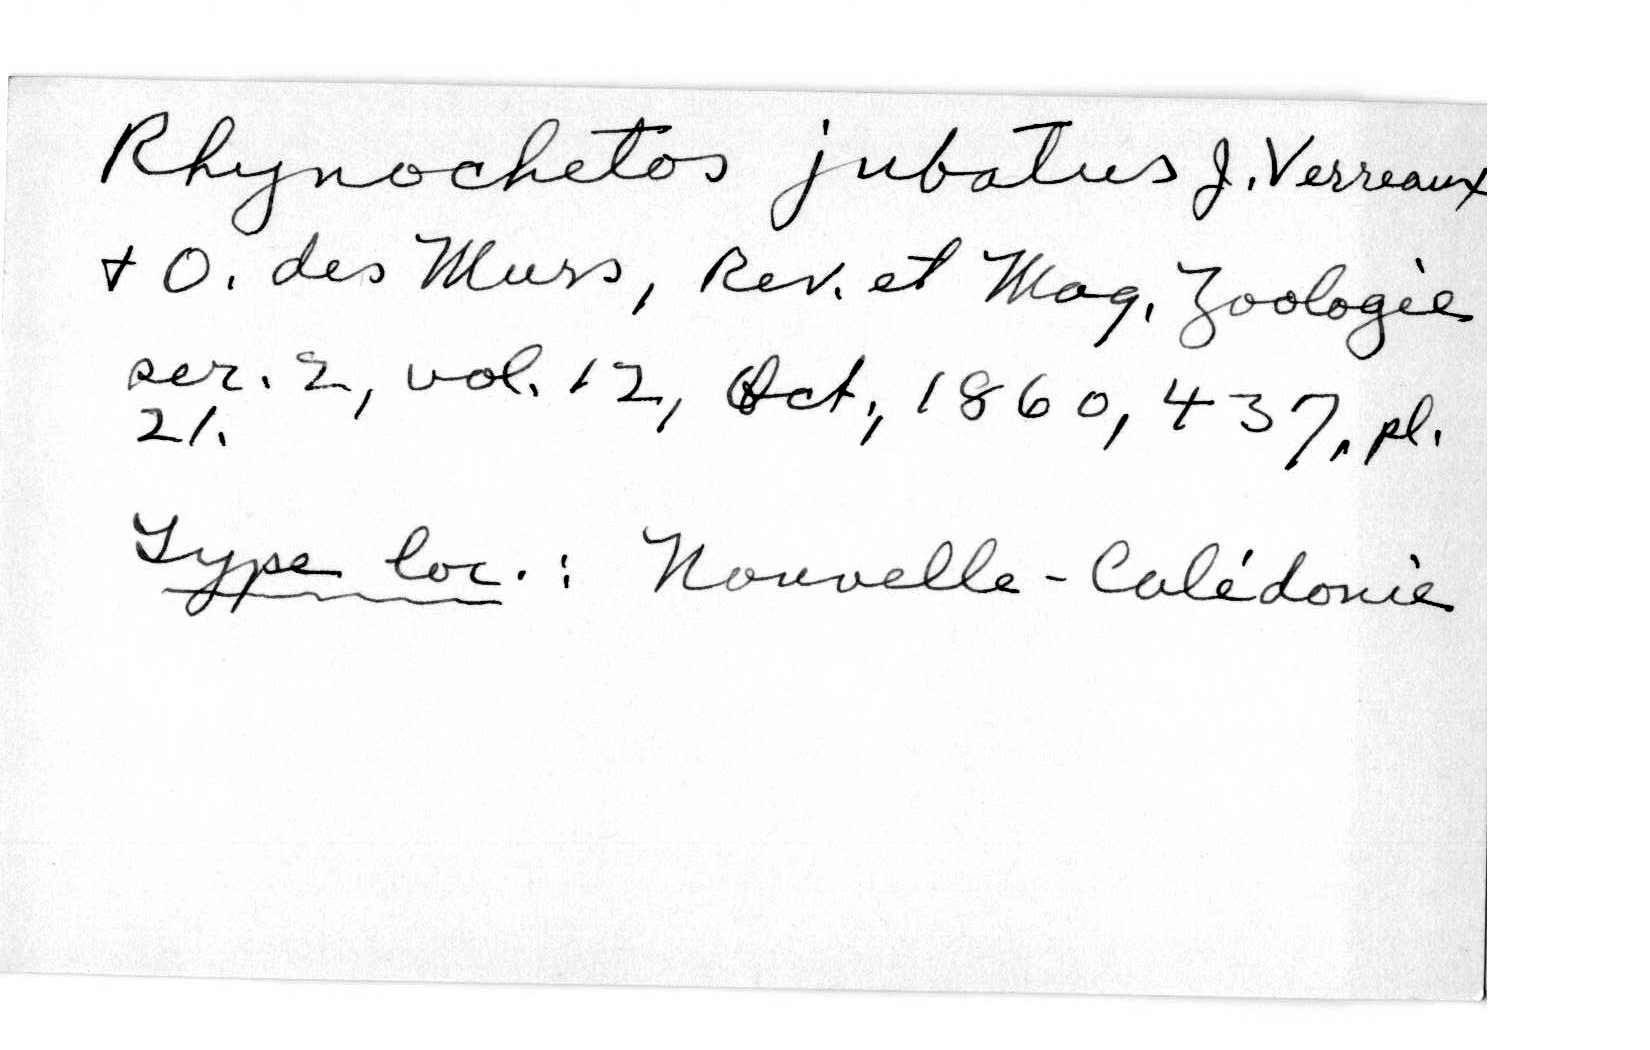 Rhynochetos jubatus J. Verreaux
+ O. des Murs, Rev. et Mag. Zoologie
ser. 2, vol. 12, Oct., 1860, 437, pl.
21.
Type loc.: Nouvelle-Calédonie